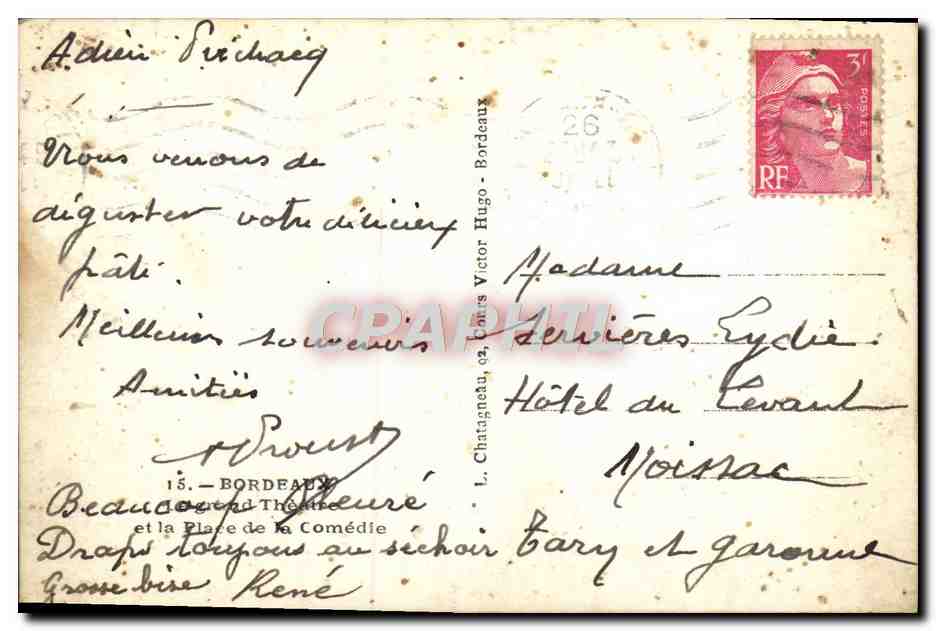 Adrien
Vous venons de
déguster votre délicieux
pâté.
Meilleurs souvenirs
Amitiés
Proust
15. — BORDEAUX
Le grand Théâtre
et la Place de la Comédie
Beaucoup pleuré
Draps toujours au séchoir
Grosse bise René
L. Chatagneau, 92, Cours Victor Hugo - Bordeaux
26
3F
POSTES
RF
Madame
Servières Lydie
Hôtel du Levant
Moissac
Tarn et Garonne
CRAPHIL